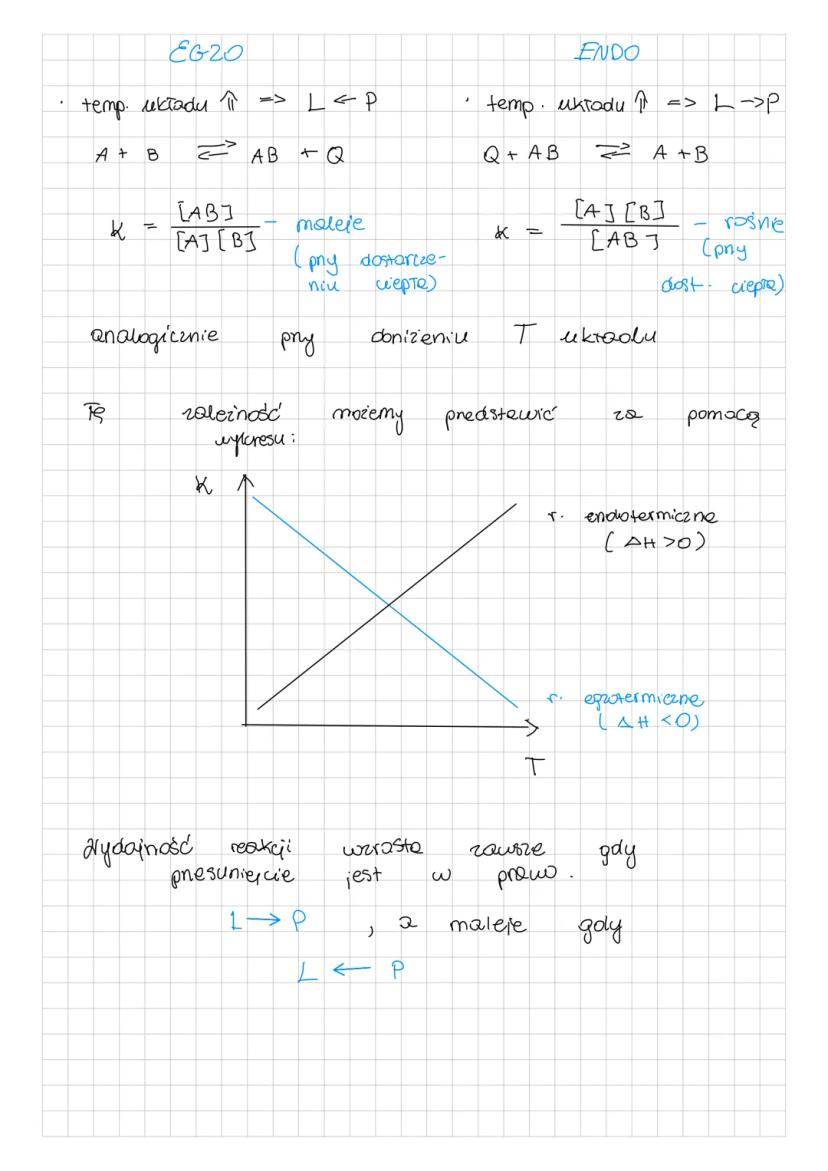 EGZO
ENDO
• temp. układu ⇑ => L ← P
• temp. układu ⇑ => L → P
A + B ⇄ AB + Q
Q + AB ⇄ A + B
K = [AB] / [A][B] - maleje
(przy dostarcze-
niu ciepła)
K = [A][B] / [AB] - rośnie
(przy
dost. ciepła)
analogicznie przy doniżeniu T układu
Tę zależność możemy przedstawić za pomocą
wykresu:
K
r. endotermiczne
(ΔH >0)
r. egzotermiczne
(ΔH <0)
T
Wydajność reakcji wzrasta zawsze gdy
przesunięcie jest w prawo.
L → P , a maleje gdy
L ← P